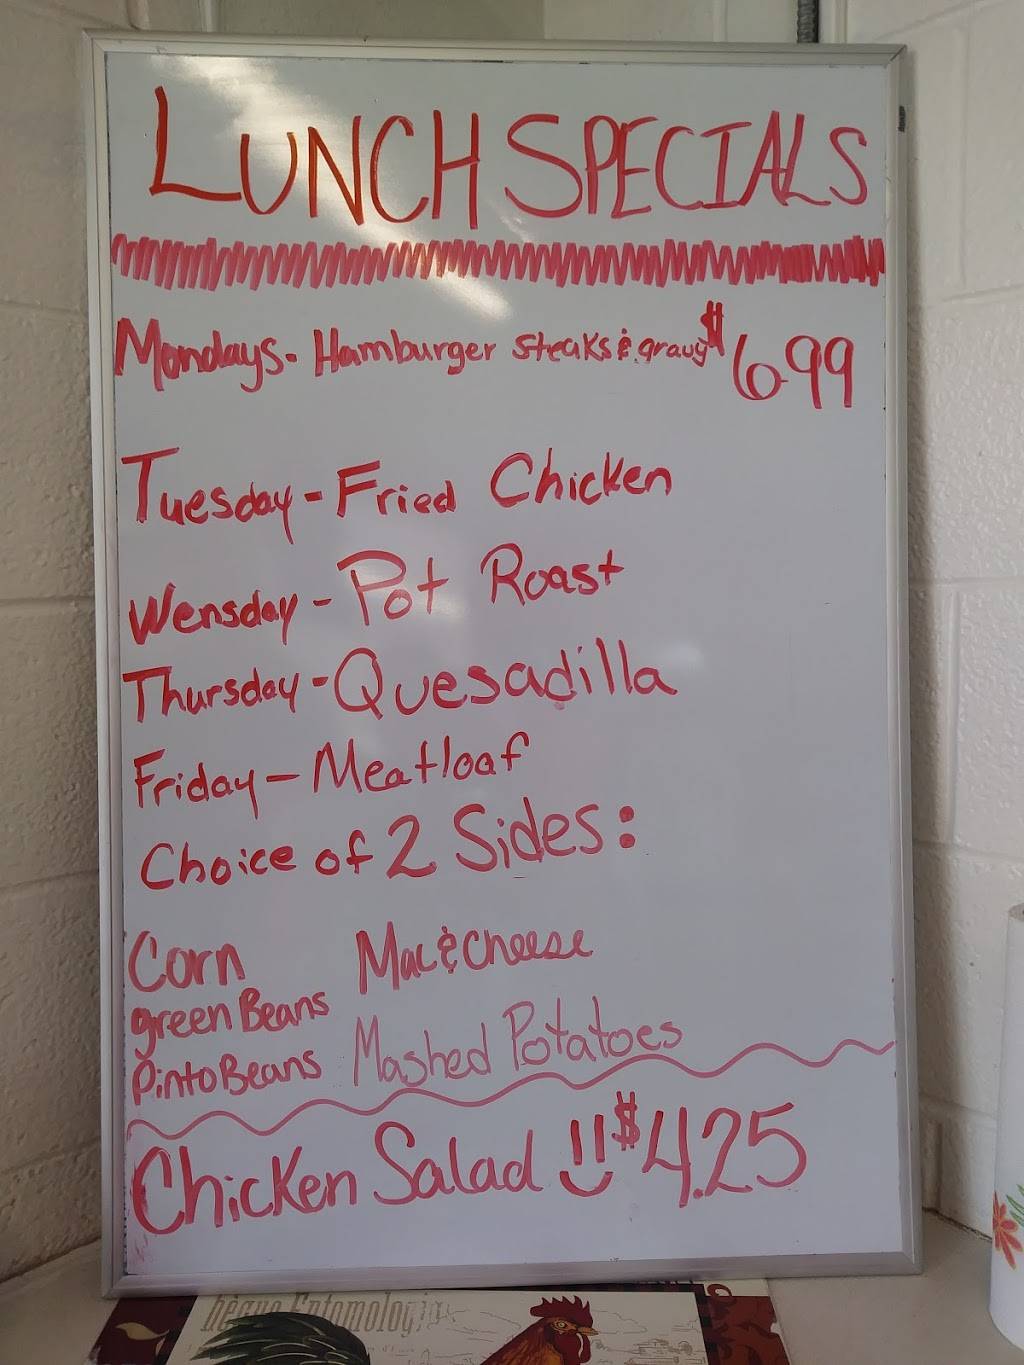 LUNCH SPECIALS
Mondays - Hamburger steaks & gravy $6.99
Tuesday - Fried Chicken
Wensday - Pot Roast
Thursday - Quesadilla
Friday - Meatloaf
Choice of 2 Sides:
Corn Mac & Cheese
green Beans
pinto Beans Mashed Potatoes
Chicken Salad !! $4.25
Entomologi